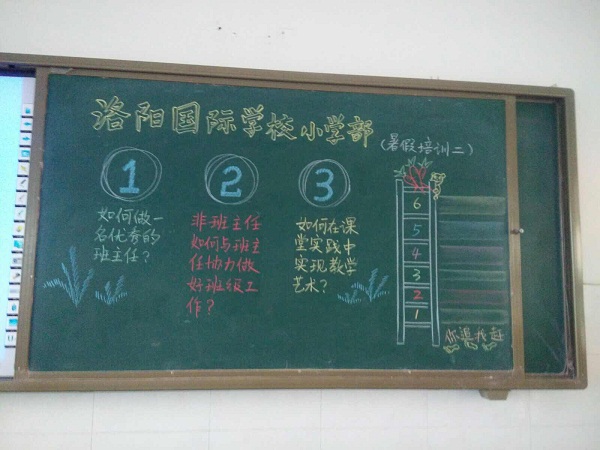 洛阳国际学校小学部
(暑假培训二)
1
如何做一
名优秀的
班主任?
2
非班主任
如何与班主
任协力做
好班级工
作?
3
如何在课
堂实践中
实现教学
艺术?
6
5
4
3
2
1
你追我赶